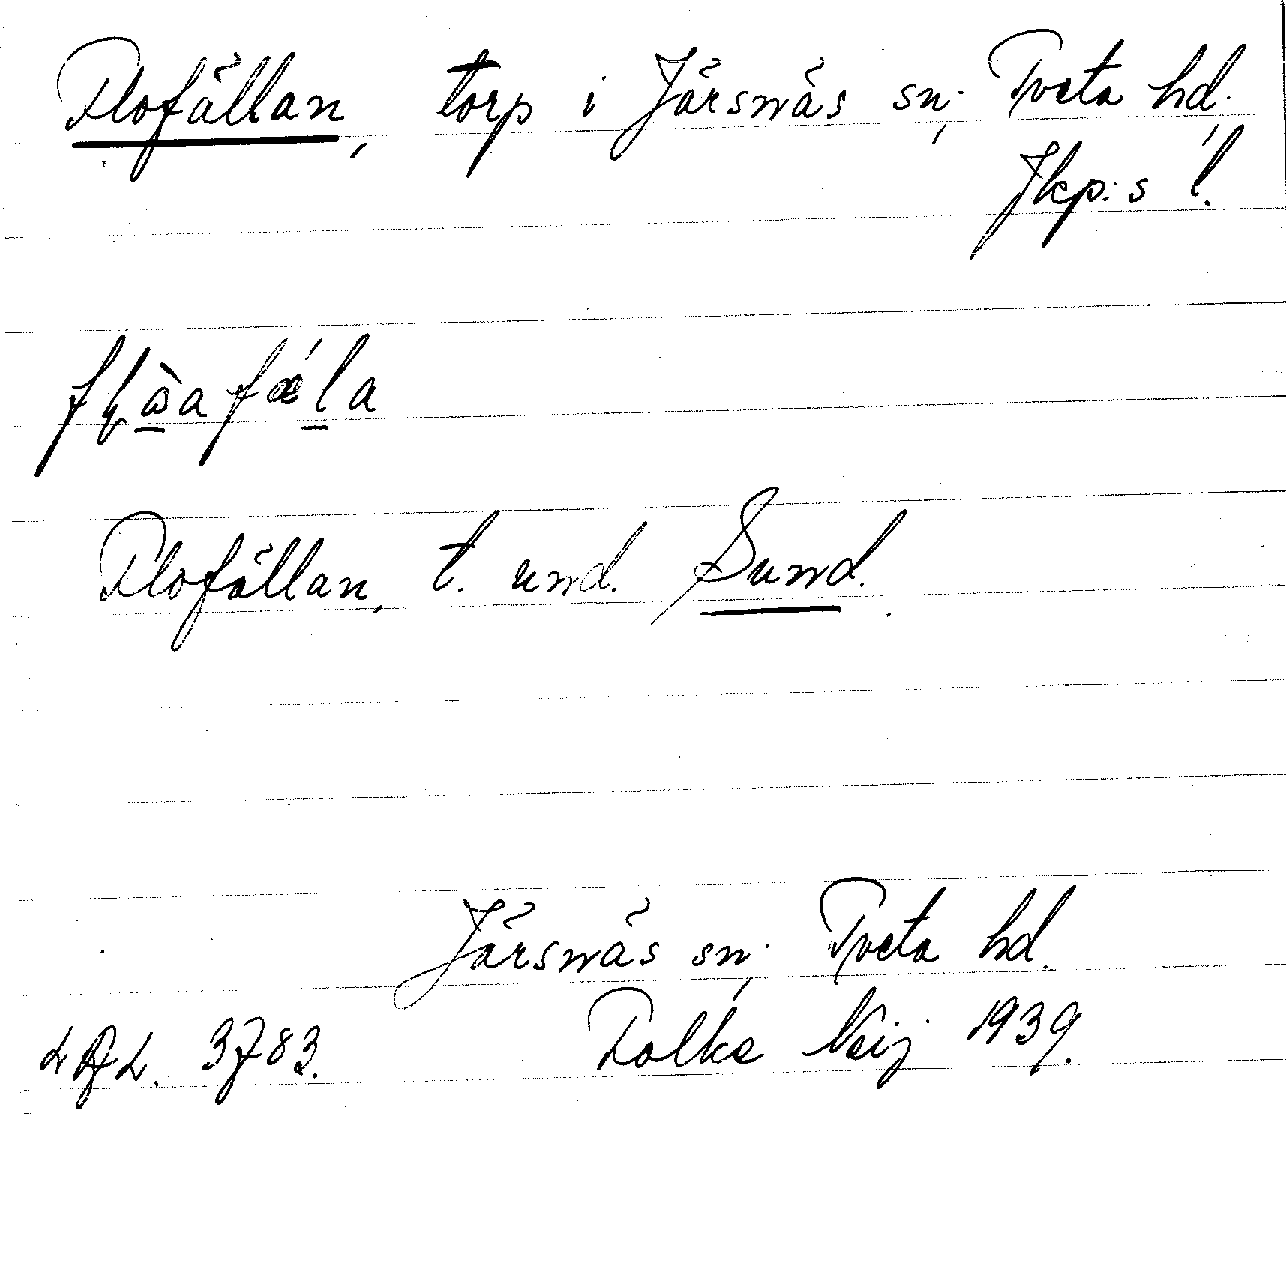 Flofällan, torp i Järsnäs sn, Tveta hd.
Jkp:s l.
Flofällan, t. und. Sund.
Järsnäs sn, Tveta hd.
3783. Folke 1939.